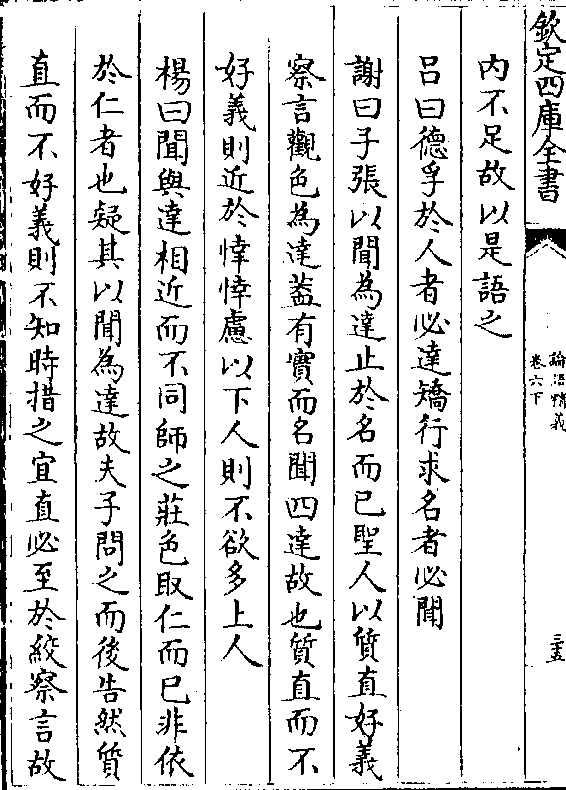 欽定四庫全書
論語精義
卷六下
三五
內不足故以是語之
吕曰德孚於人者必達矯行求名者必聞
謝曰子張以聞為達止於名而已聖人以質直好義
察言觀色為達蓋有實而名聞四達故也質直而不
好義則近於悻悻慮以下人則不欲多上人
楊曰聞與達相近而不同師之莊色取仁而已非依
於仁者也疑其以聞為達故夫子問之而後告然質
直而不好義則不知時措之宜直必至於絞察言故